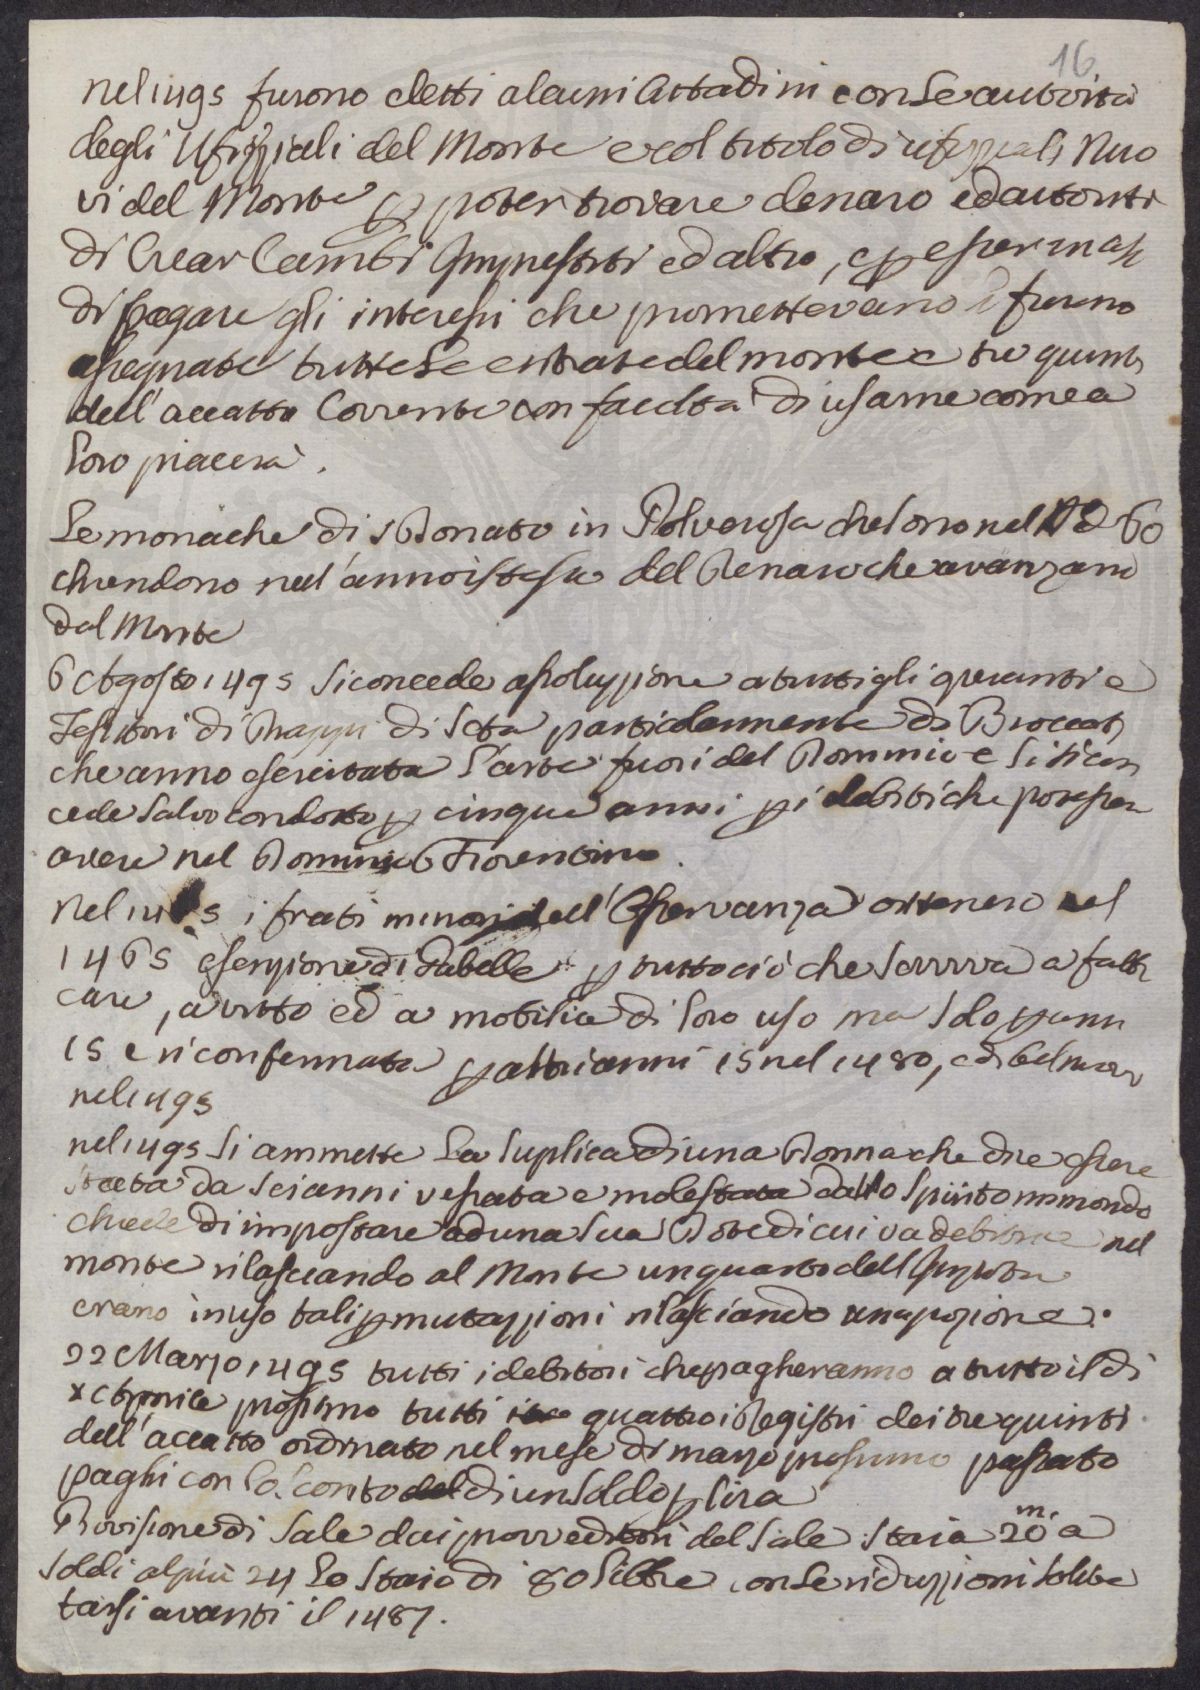 16
nel 1495 furono eletti alcuni Cittadini con le autorità
degli Ufizziali del Monte e col titolo di ufizziali Nuo
vi del Monte p poter trovare denaro ed autorità
di Crear Cambi Impresti ed altro, e p esser
di pagare gli interessi che promettevano furono
assegnate tutte le entrate del monte e tre quinti
dell'accatto Corrente con facoltà di usarne come a
loro piacerà.
Le monache di S Donato in Polverosa che sono nel 60
chiendono nell'anno istesso del Denaro che avanzano
dal Monte
6 Agosto 1495 si concede assoluzzione a tutti gli
Tessitori di Drappi di Seta particolarmente di Broccati
che anno esercitata l'arte fuori del Dominio e li si con
cede Salvo condotto p cinque anni p i debiti che potesser
avere nel Dominio Fiorentino.
Nel 1495 i frati minori dell'Osservanza ottenero nel
1465 esenzione di Gabelle p tutto ciò che serviva a fabbri
care, a vitto ed a mobilia di loro uso ma solo p anni
15 e riconfermata p altri anni 15 nel 1480, ed
nel 1495
nel 1495 si ammette la suplica di una Donna che dice essere
stata da sei anni vessata e molestata dallo spirito immondo
chiede di impostare ad una sua Dote di cui va debitrice nel
monte rilasciando al Monte un quarto dell'
erano in uso tali pmutazzioni rilasciando una pozione.
22 Marzo 1495 tutti i debitori che pagheranno a tutto il dì
x Aprile prossimo tutti quattro i Registri dei tre quinti
dell'accatto ordinato nel mese di marzo prossimo passato
paghi con lo sconto di un soldo p lira
Provisione di Sale dai provveditori del Sale Staia 20 m. a
soldi al più 24 lo staio di 80 libbre con le riduzzioni solite
farsi avanti il 1487.